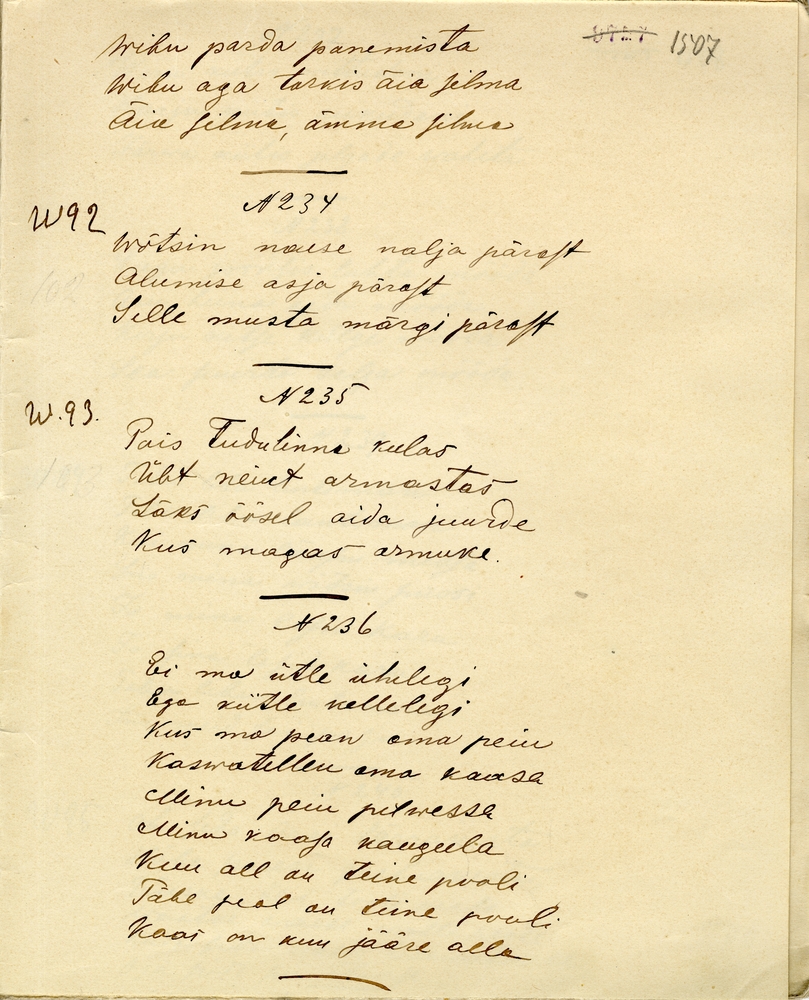 1507
Wihu parda panemista
Wihu aga torkis äia silma
Äia silma, ämma silma
N 234
W 92
Wõtsin naese nalja pärast
Alumise asja pärast
Selle musta märgi pärast
N 235
W. 93.
Pois Tudulinna külas
Üht neiut armastas
Läks öösel aida juurde
Kus magas armuke.
N 236
Ei ma ütle ühelegi
Ega kütle kellelegi
Kus ma pean oma peiu
Kaswatellen oma kaasa
Minu peiu pilwessa
Minu kaasa kaugeela
Kuu all on teine pooli
Tähe peal on teine pooli
Kaas on kuu jääre alla